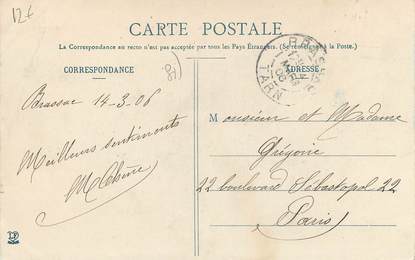 12€
CARTE POSTALE
La Correspondance au recto n'est pas acceptée par tous les Pays Étrangers. (Se renseigner à la Poste.)
CORRESPONDANCE
ADRESSE
BRASSAC
TARN
Brassac 14-3-06
Meilleurs sentiments
Monsieur et Madame
Grégoire
22 boulevard Sébastopol 22
Paris